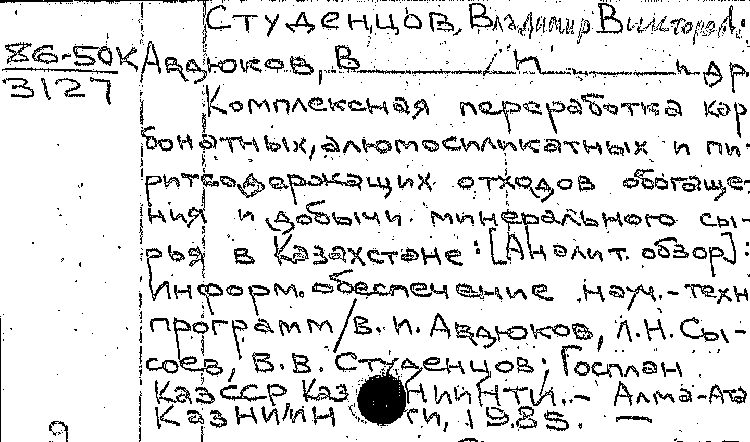 Студенцов, Владимир Викторович.
86-50К Авдюков, В И. и др
3127
Комплексная переработка кар
бонатных, алюмосиликатных и пи-
ритсодержащих отходов обогаще-
ния и добычи минерального сы-
рья в Казахстане: [Аналит. обзор]:
Информ. обеспечение науч.-техн
программ / В. И. Авдюков, Л. Н. Сы-
соев, В. В. Студенцов; Госплан
КазССР Каз НИИНТИ. - Алма-Ата
КазНИИН ТИ, 1985. —